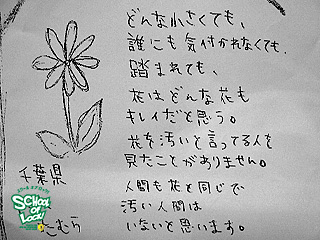 どんな小さくても、
誰にも気付かれなくても、
踏まれても、
花はどんな花も
キレイだと思う。
花を汚いと言ってる人を
見たことがありません。
人間も花と同じで
汚い人間は
いないと思います。
千葉県
SCHOOL
OF
LOCK!
こむら